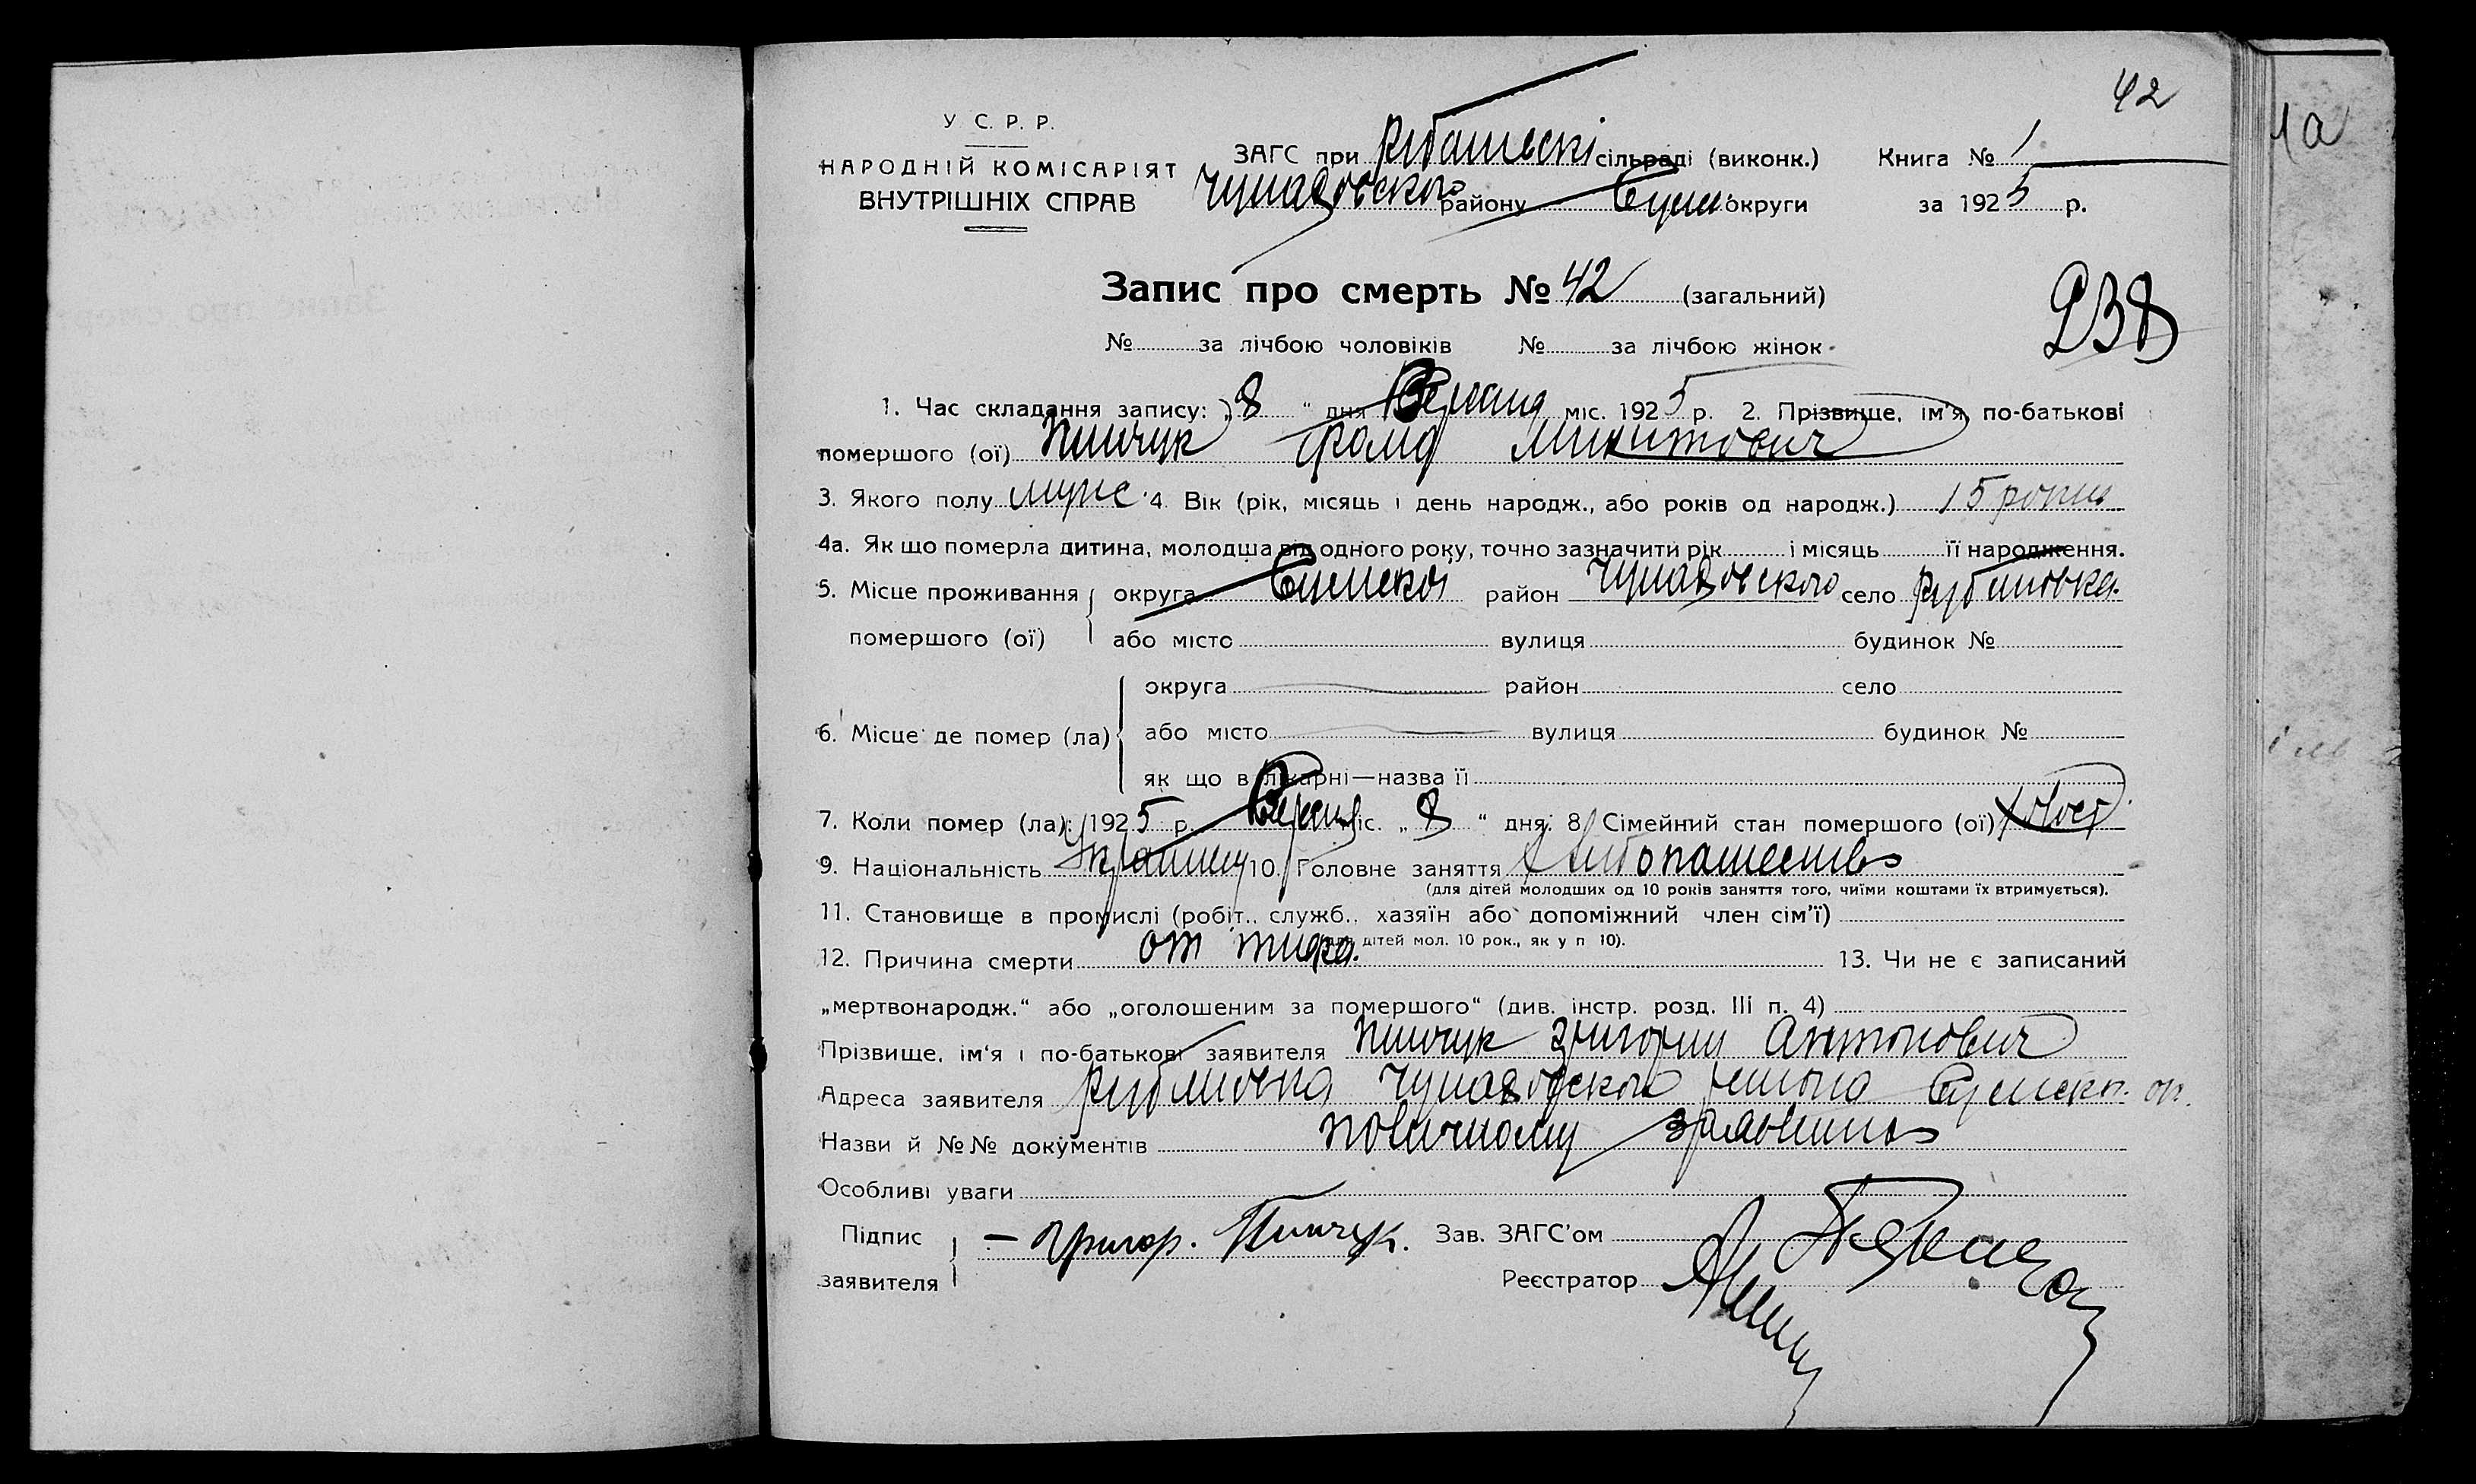 42
У. С. Р. Р.
НАРОДНІЙ КОМІСАРІЯТ
ВНУТРІШНІХ СПРАВ
ЗАГС при сільраді (виконк.) Книга № 1
району Сумс округи за 1925 р.
Запис про смерть № 42 (загальний)
238
№ за лічбою чоловіків № за лічбою жінок
1. Час складання запису: „8“ дня Версня міс. 1925 р. 2. Прізвище, ім'я, по-батькові
помершого (ої) Пинчук Фома Микитович
3. Якого полу муже 4. Вік (рік, місяць і день народж., або років од народж.) 15 роки
4а. Як що померла дитина, молодша від одного року, точно зазначити рік і місяць її народження.
5. Місце проживання округа Сумскої район село
помершого (ої) або місто вулиця будинок №
округа район село
6. Місце де помер (ла) або місто вулиця будинок №
як що в лікарні—назва її
7. Коли помер (ла): 1925 р. Версня міс. „8“ дня. 8. Сімейний стан помершого (ої) холост
9. Національність 10. Головне заняття
(для дітей молодших од 10 років заняття того, чиїми коштами їх втримується).
11. Становище в промислі (робіт., служб., хазяїн або допоміжний член сім'ї)
(для дітей мол. 10 рок., як у п 10).
12. Причина смерти от тифа. 13. Чи не є записаний
„мертвонародж.“ або „оголошеним за помершого“ (див. інстр. розд. III п. 4)
Прізвище, ім'я і по-батькові заявителя Пинчук Григорий Антонович
Адреса заявителя района Сумск. ок.
Назви й №№ документів
Особливі уваги
Підпис
заявителя
— Григор. Пинчук. Зав. ЗАГС'ом
Реєстратор